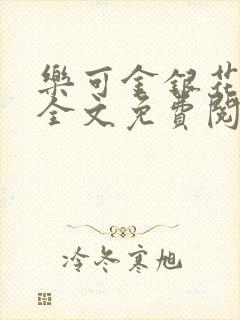 樂可金銀花
全文免費閱
冷冬寒旭